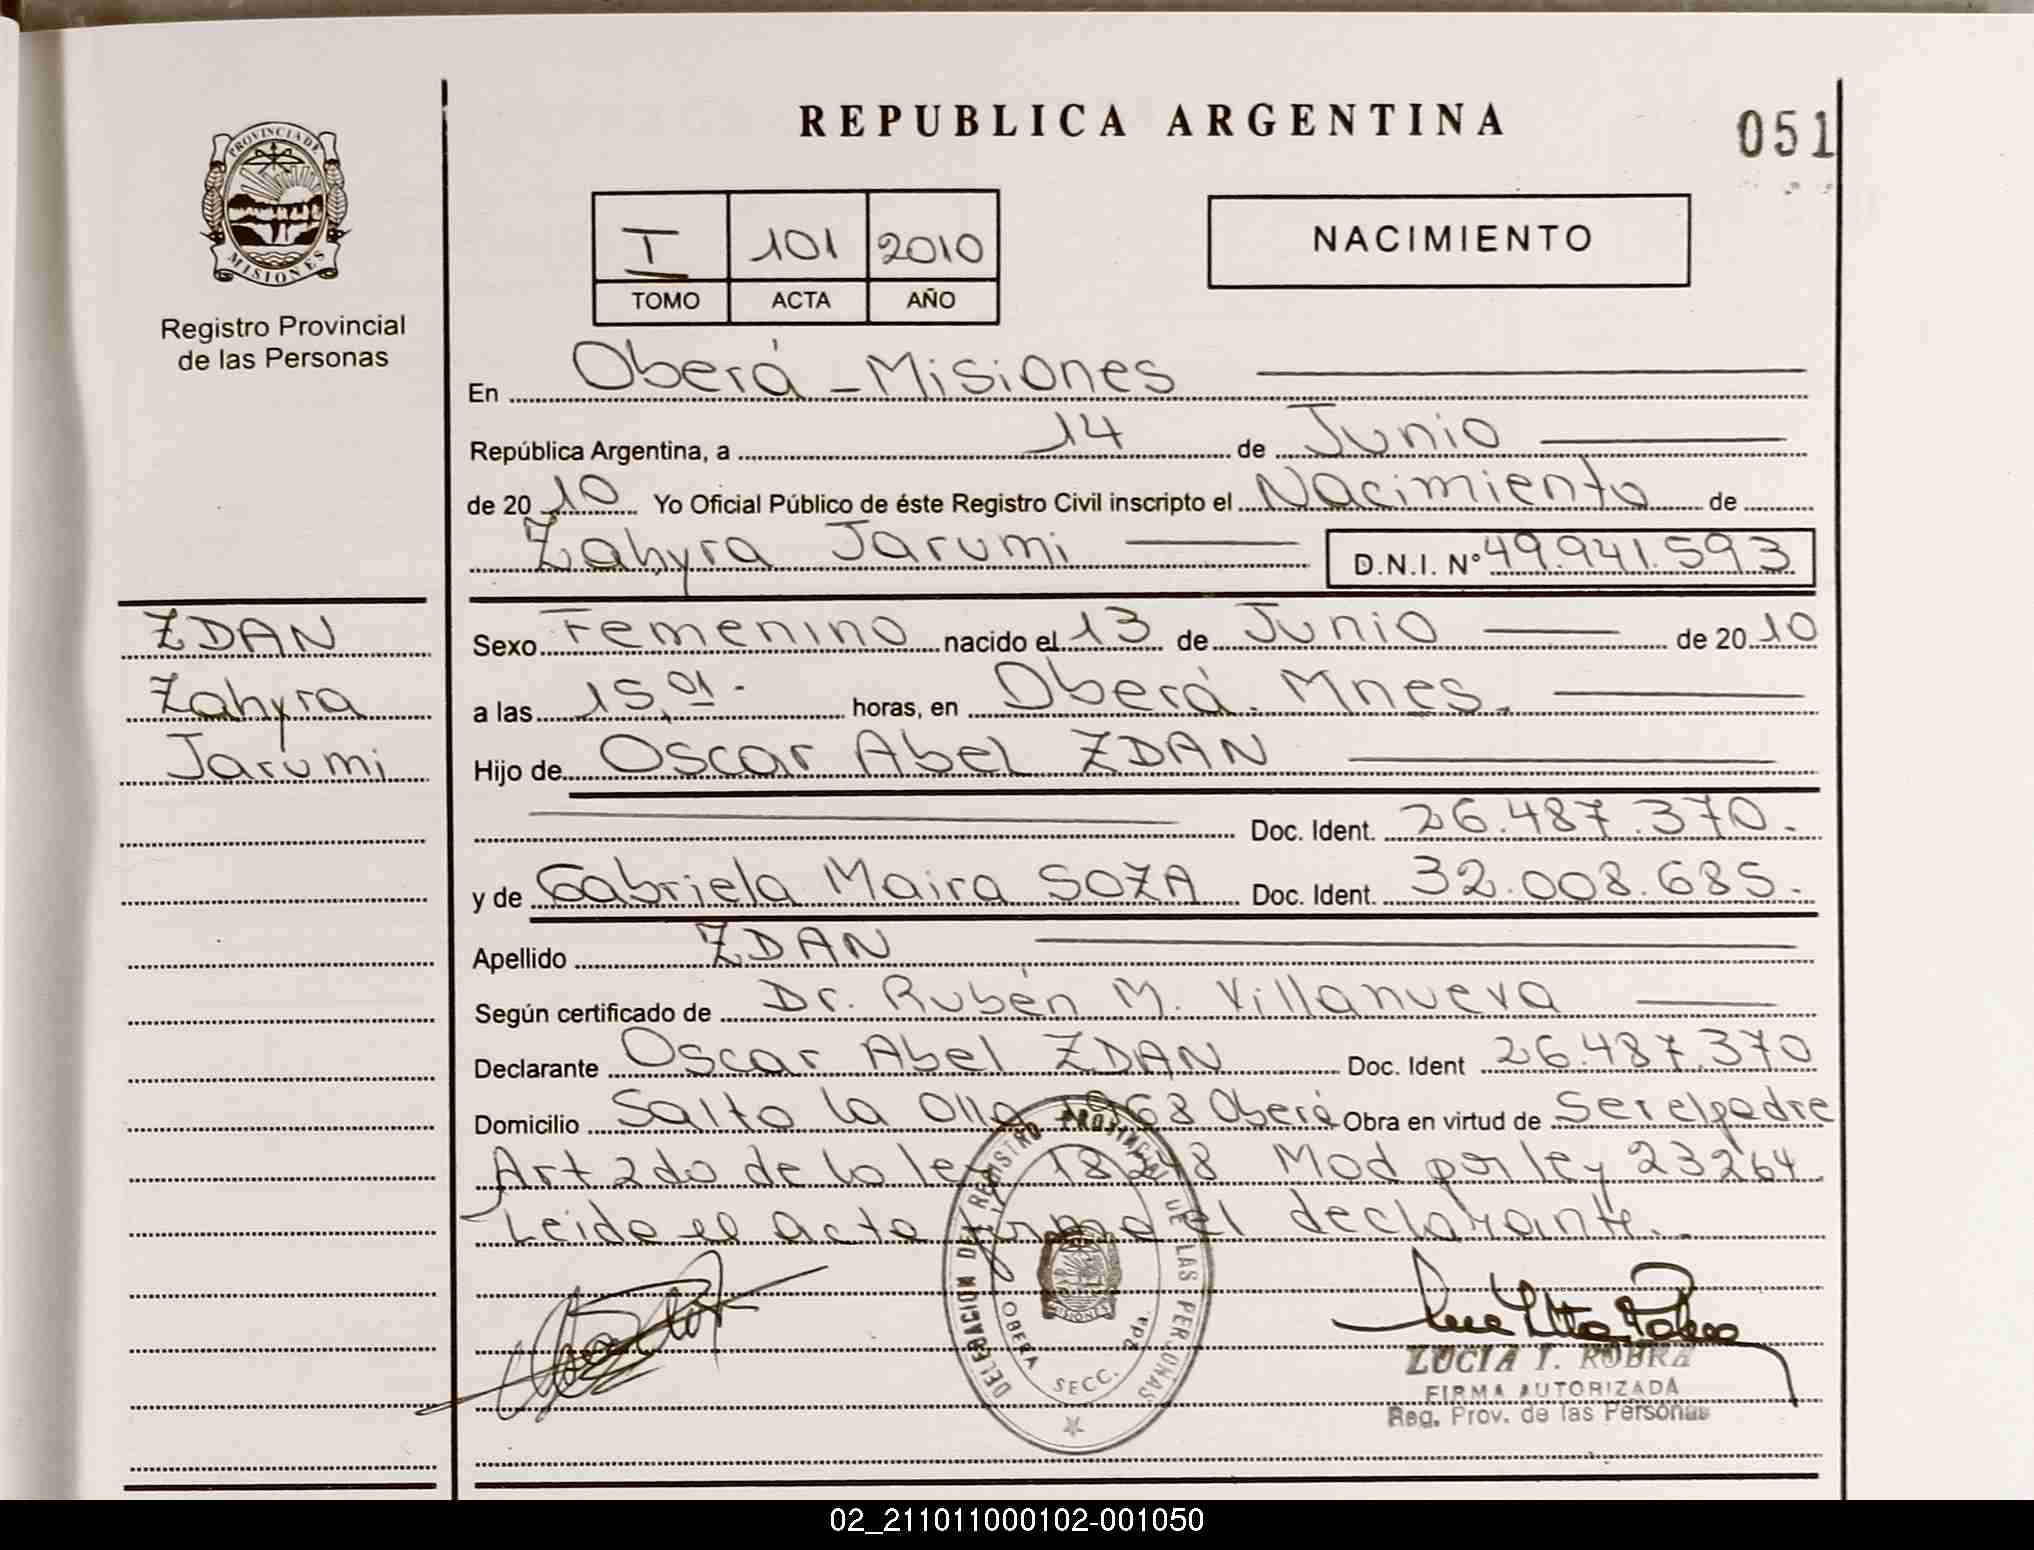 REPUBLICA ARGENTINA
051
PROVINCIA DE
MISIONES
Registro Provincial
de las Personas
I 101 2010
TOMO ACTA AÑO
NACIMIENTO
En Oberá - Misiones
República Argentina, a 14 de Junio
de 2010 Yo Oficial Público de éste Registro Civil inscripto el Nacimiento de
Zahyra Jarumi D.N.I. Nº 49.941.593
ZDAN
Zahyra
Jarumi
Sexo Femenino nacido el 13 de Junio de 2010
a las 15,01.- horas, en Oberá. Mnes.
Hijo de Oscar Abel ZDAN
Doc. Ident. 26.487.370.-
y de Gabriela Maira SOZA Doc. Ident. 32.008.685.-
Apellido ZDAN
Según certificado de Dr. Rubén M. Villanueva
Declarante Oscar Abel ZDAN Doc. Ident 26.487.370
Domicilio Salto la Olla 1968 Oberá Obra en virtud de Ser el padre
Art 2do de la ley 18248 Mod por ley 23264
Leido el acta firma el declarante.-
DELEGACION DEL REGISTRO PROVINCIAL DE LAS PERSONAS
OBERA SECC. 2da.
MISIONES
LUCIA I. ROBRA
FIRMA AUTORIZADA
Reg. Prov. de las Personas
02_211011000102-001050